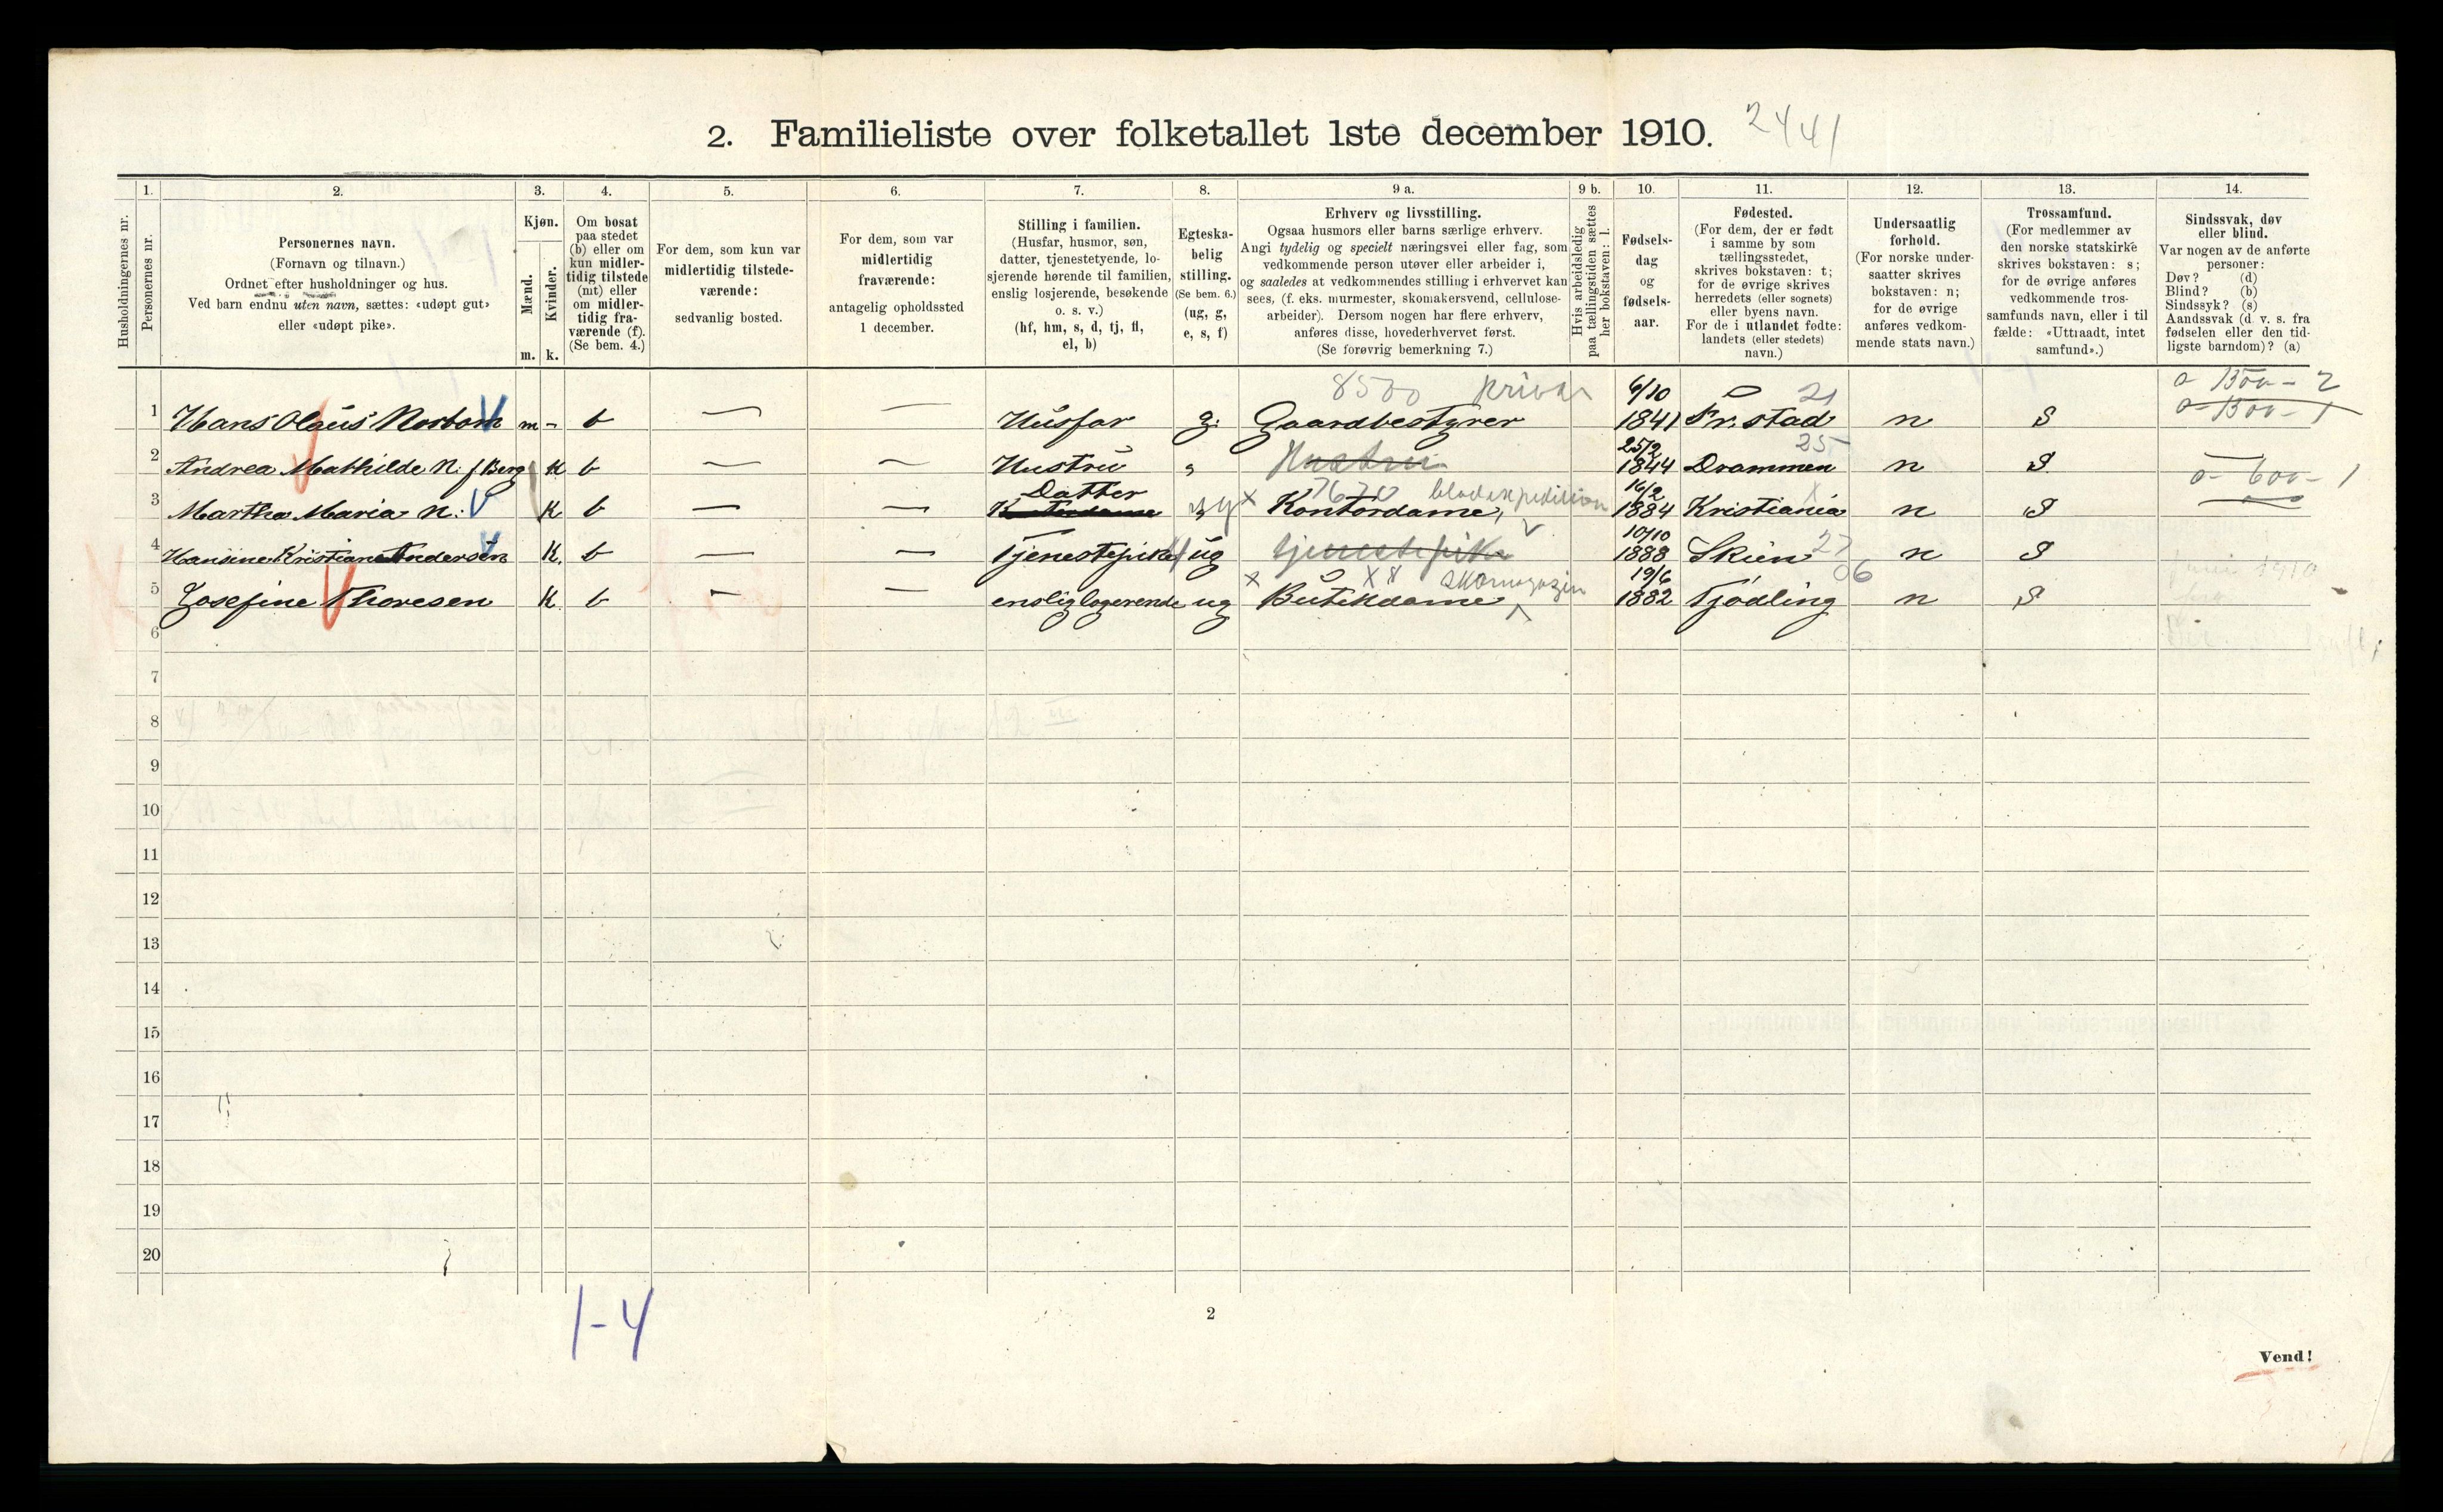 2. Familieliste over folketallet 1ste december 1910. 2441
Husholdningernes nr.
1.
Personernes nr.
2.
Personernes navn.
(Fornavn og tilnavn.)
Ordnet efter husholdninger og hus.
Ved barn endnu uten navn, sættes: «udøpt gut»
eller «udøpt pike».
3.
Kjøn.
Mænd.
Kvinder.
m. k.
4.
Om bosat
paa stedet
(b) eller om
kun midler-
tidig tilstede
(mt) eller
om midler-
tidig fra-
værende (f).
(Se bem. 4.)
5.
For dem, som kun var
midlertidig tilstede-
værende:
sedvanlig bosted.
6.
For dem, som var
midlertidig
fraværende:
antagelig opholdssted
1 december.
7.
Stilling i familien.
(Husfar, husmor, søn,
datter, tjenestetyende, lo-
sjerende hørende til familien,
enslig losjerende, besøkende
o. s. v.)
(hf, hm, s, d, tj, fl,
el, b)
8.
Egteska-
belig
stilling.
(Se bem. 6.)
(ug, g,
e, s, f)
9 a.
Erhverv og livsstilling.
Ogsaa husmors eller barns særlige erhverv.
Angi tydelig og specielt næringsvei eller fag, som
vedkommende person utøver eller arbeider i,
og saaledes at vedkommendes stilling i erhvervet kan
sees, (f. eks. murmester, skomakersvend, cellulose-
arbeider). Dersom nogen har flere erhverv,
anføres disse, hovederhvervet først.
(Se forøvrig bemerkning 7.)
9 b.
Hvis arbeidsledig
paa tællingstiden sættes
her bokstaven: l.
10.
Fødsels-
dag
og
fødsels-
aar.
11.
Fødested.
(For dem, der er født
i samme by som
tællingsstedet,
skrives bokstaven: t;
for de øvrige skrives
herredets (eller sognets)
eller byens navn.
For de i utlandet fødte:
landets (eller stedets)
navn.)
12.
Undersaatlig
forhold.
(For norske under-
saatter skrives
bokstaven: n;
for de øvrige
anføres vedkom-
mende stats navn.)
13.
Trossamfund.
(For medlemmer av
den norske statskirke
skrives bokstaven: s;
for de øvrige anføres
vedkommende tros-
samfunds navn, eller i til
fælde: «Uttraadt, intet
samfund».)
14.
Sindssvak, døv
eller blind.
Var nogen av de anførte
personer:
Døv? (d)
Blind? (b)
Sindssyk? (s)
Aandssvak (d. v. s. fra
fødselen eller den tid-
ligste barndom)? (a)
8500 Privat 6/10 21 0- 1500 - 2
1 Hans Olaus Norbom m - b — — Husfar g. Gaardbestyrer 1841 Fr.stad n S 0- 1500 - 1
25/2 25
2 Andrea Mathilde N. f Berg K b — — Hustru " Hustru 1844 Drammen n S
Datter 7670 bladexpedition 16/2 x 0- 600 - 1
3 Martha Maria N: K b — — Kontordame ug x Kontordame, 1884 Kristiania n S
10/10 27
4 Hansine Kristiane Andersen K. b — — Tjenestepike ug tjenestepike 1888 Skien n S
x x 8 skomagazin 19/6 06
5 Josefine Thoresen K. b — — enslig logerende ug Butikdame 1882 Tjödling n S
6
7
8
9
10
11
12
13
14
15
16
17
18
19
20
1-4
2
Vend!